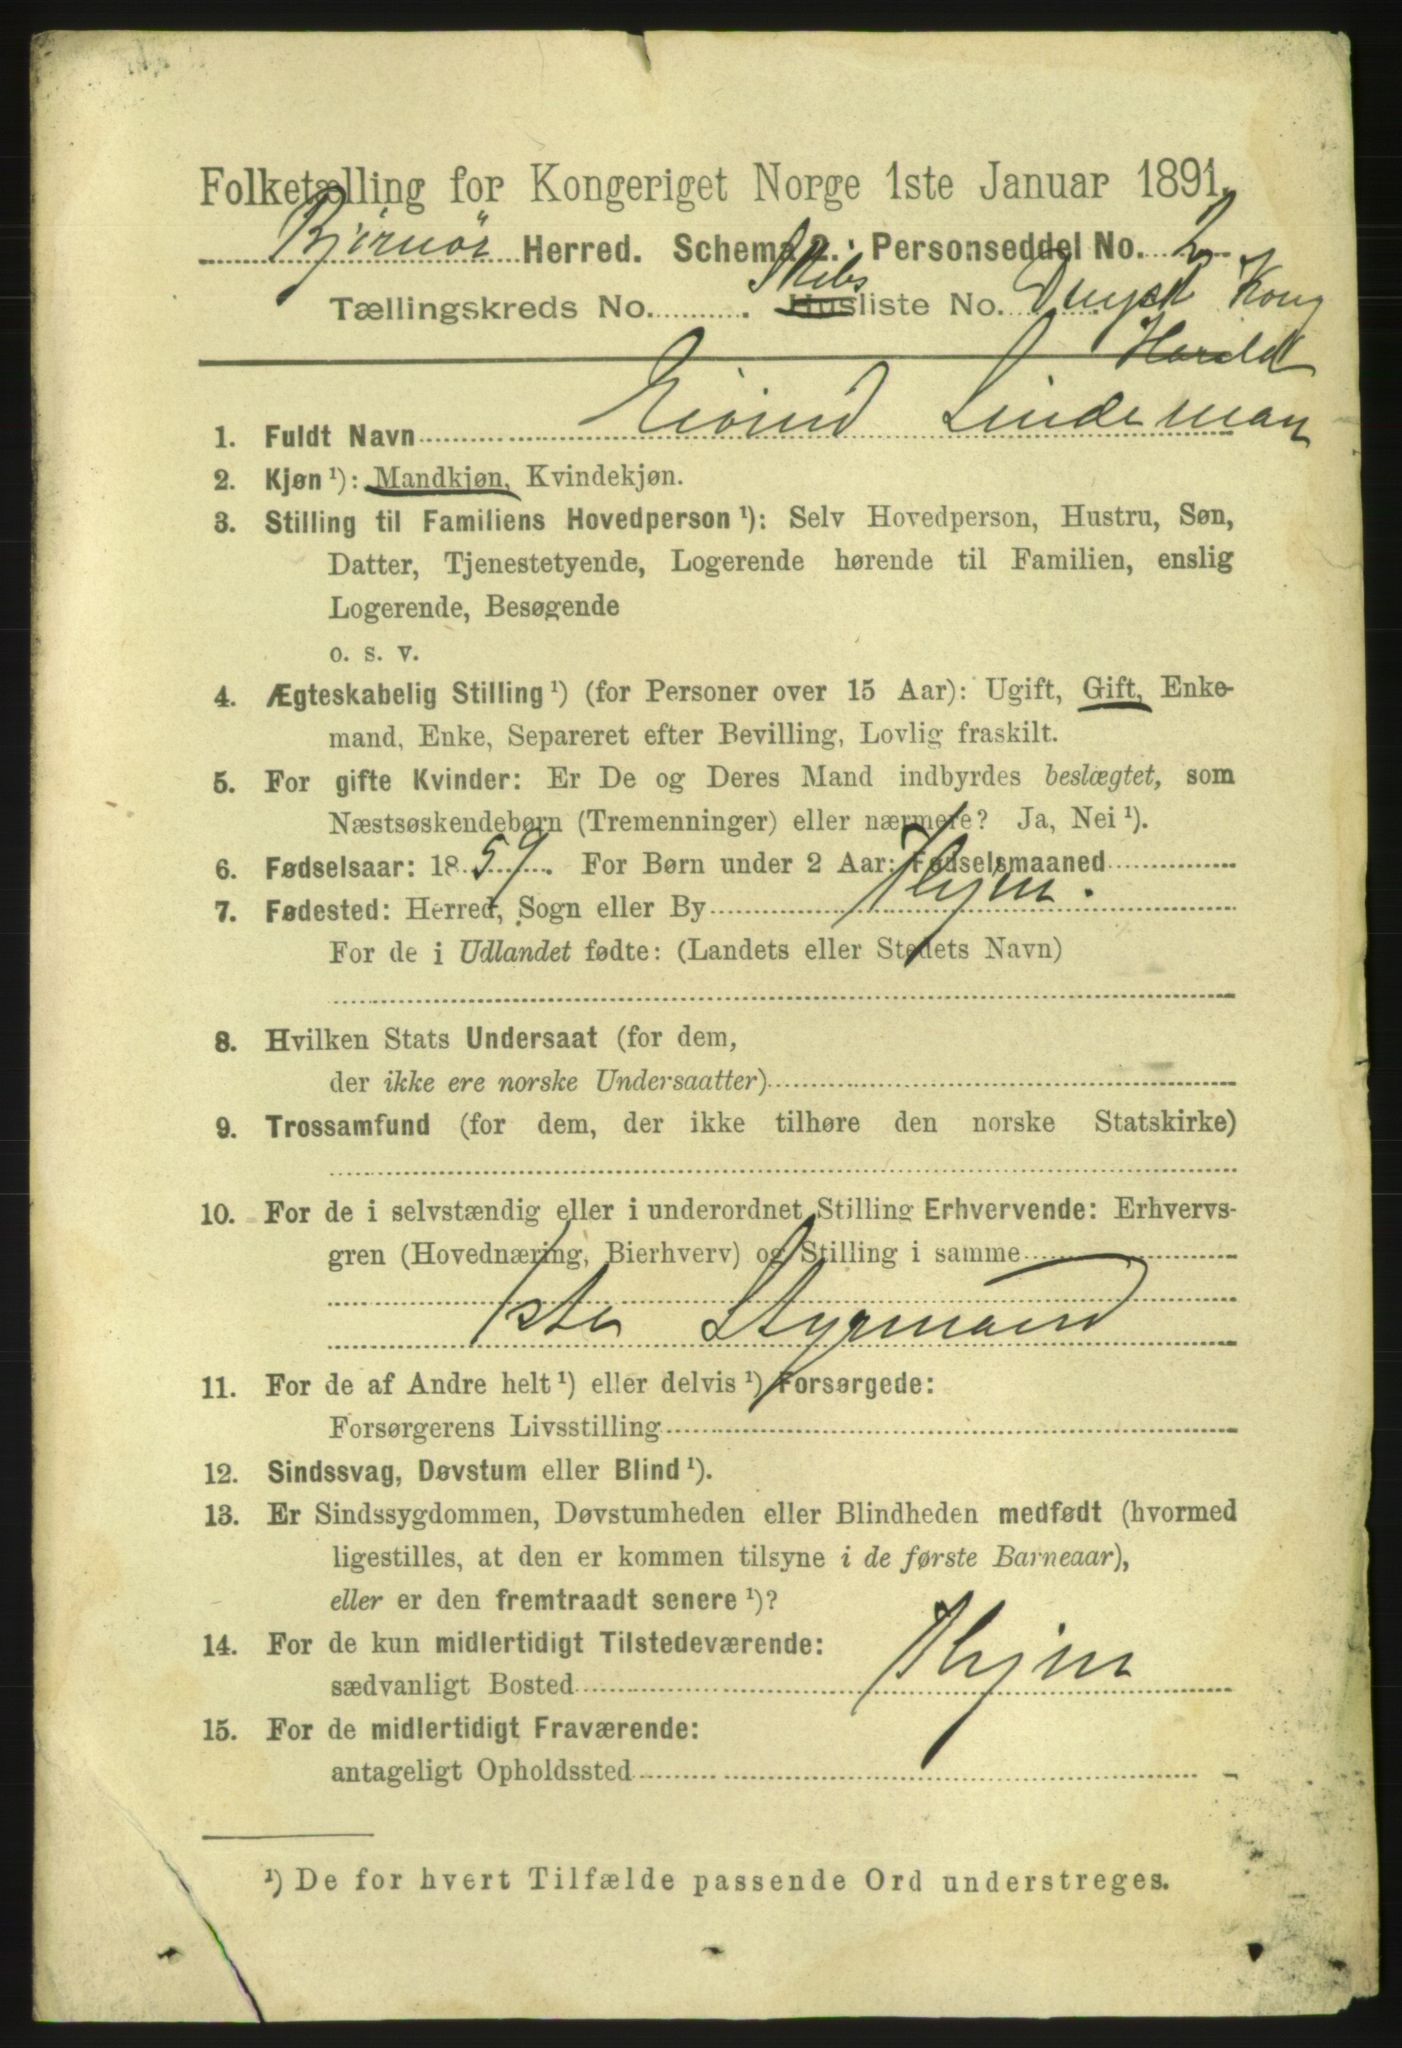 Folketælling for Kongeriget Norge 1ste Januar 1891.
Bjørnør Herred. Schema 2. Personseddel No. 2
Tællingskreds No. Skibsliste No. Kong
Harald
1. Fuldt Navn Eivind Lindeman
2. Kjøn ¹): Mandkjøn, Kvindekjøn.
3. Stilling til Familiens Hovedperson ¹): Selv Hovedperson, Hustru, Søn,
Datter, Tjenestetyende, Logerende hørende til Familien, enslig
Logerende, Besøgende
o. s. v.
4. Ægteskabelig Stilling ¹) (for Personer over 15 Aar): Ugift, Gift, Enke-
mand, Enke, Separeret efter Bevilling, Lovlig fraskilt.
5. For gifte Kvinder: Er De og Deres Mand indbyrdes beslægtet, som
Næstsøskendebørn (Tremenninger) eller nærmere? Ja, Nei ¹).
6. Fødselsaar: 1859. For Børn under 2 Aar: Fødselsmaaned
7. Fødested: Herred, Sogn eller By Thjm.
For de i Udlandet fødte: (Landets eller Stedets Navn)
8. Hvilken Stats Undersaat (for dem,
der ikke ere norske Undersaatter)
9. Trossamfund (for dem, der ikke tilhøre den norske Statskirke)
10. For de i selvstændig eller i underordnet Stilling Erhvervende: Erhvervs-
gren (Hovednæring, Bierhverv) og Stilling i samme
1ste Styrmand
11. For de af Andre helt ¹) eller delvis ¹) Forsørgede:
Forsørgerens Livsstilling
12. Sindssvag, Døvstum eller Blind ¹).
13. Er Sindssygdommen, Døvstumheden eller Blindheden medfødt (hvormed
ligestilles, at den er kommen tilsyne i de første Barneaar),
eller er den fremtraadt senere ¹)?
14. For de kun midlertidigt Tilstedeværende:
sædvanligt Bosted Thjm
15. For de midlertidigt Fraværende:
antageligt Opholdssted
¹) De for hvert Tilfælde passende Ord understreges.